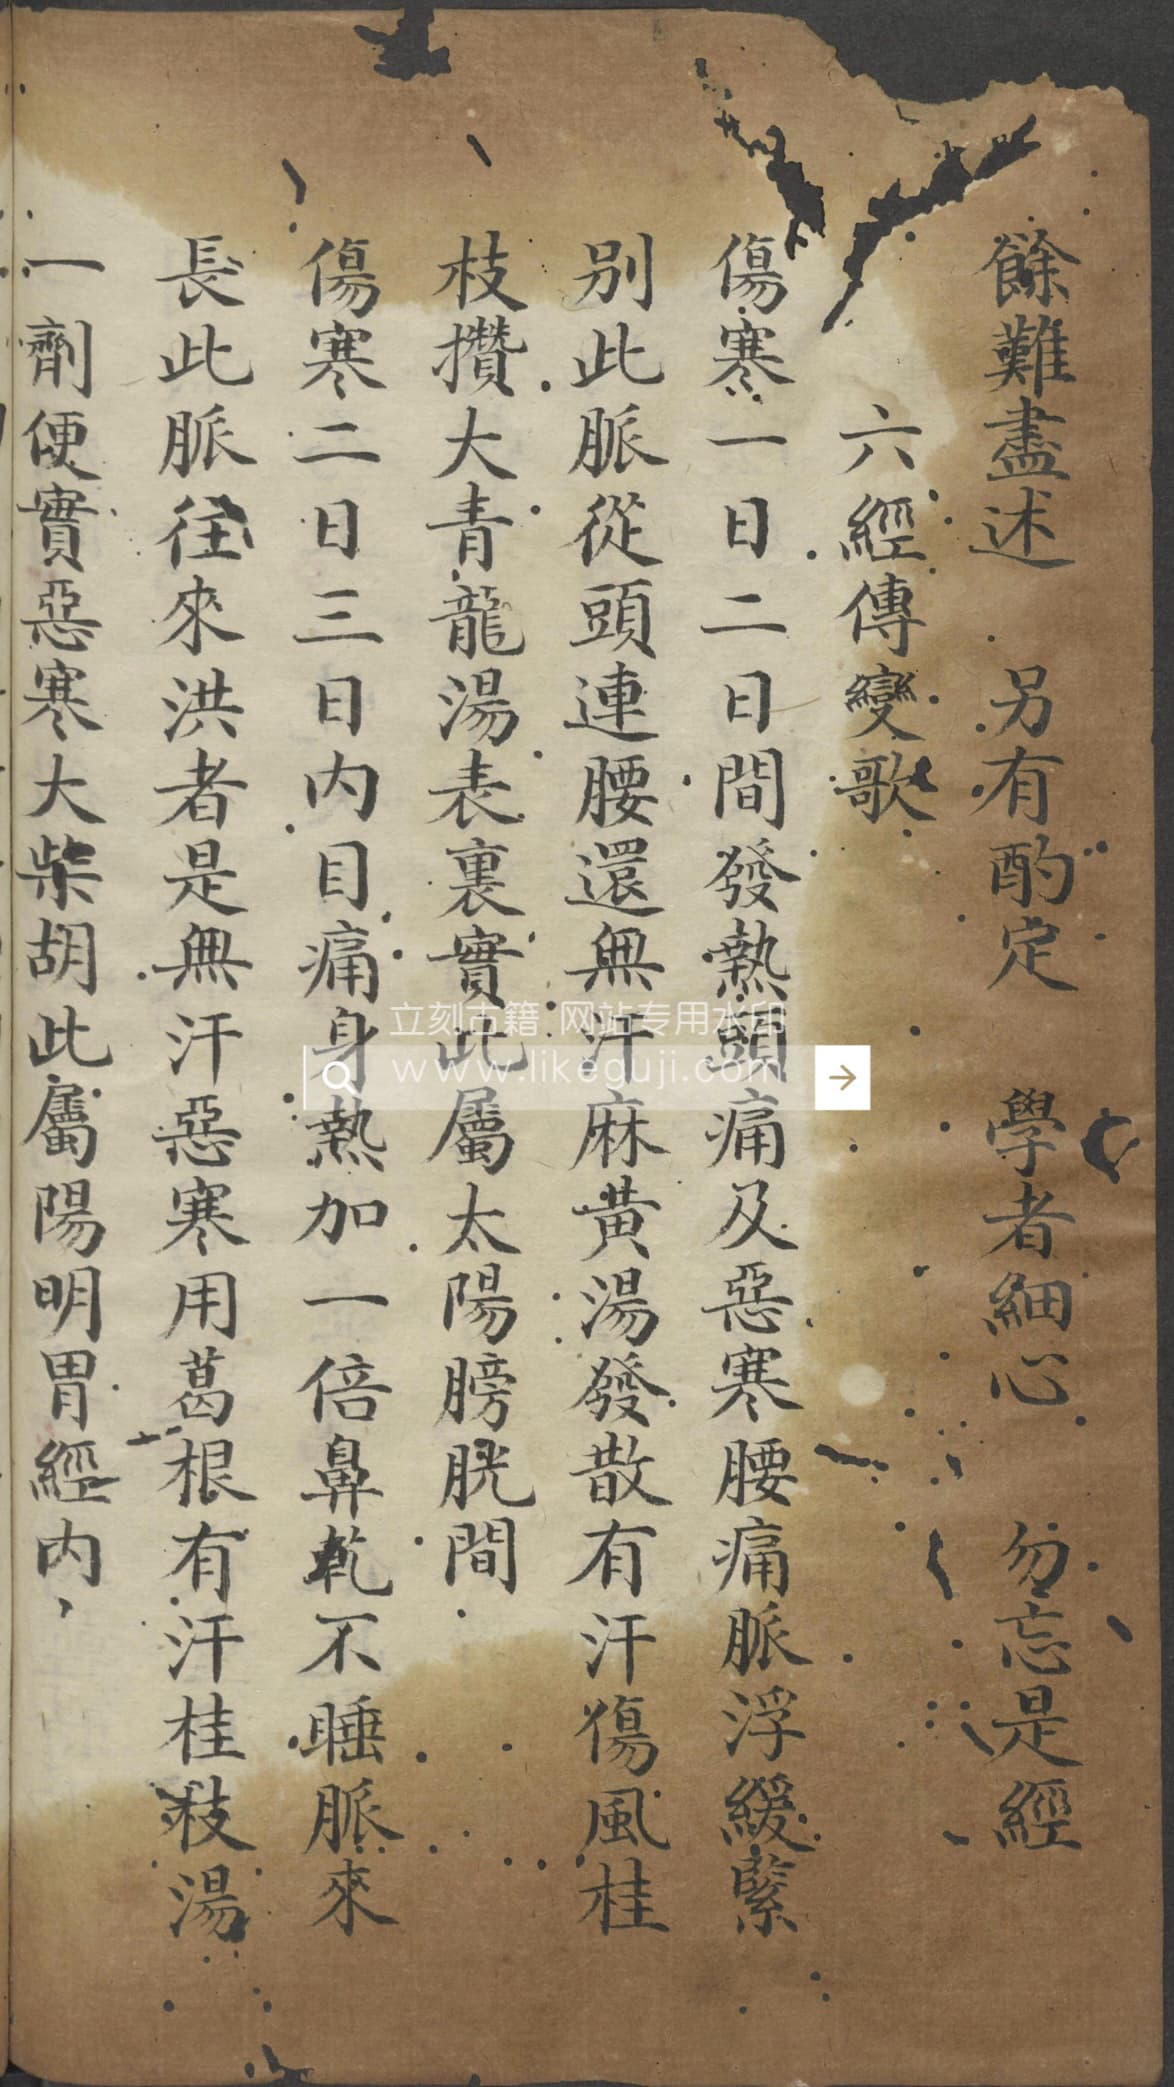 餘難盡述 另有酌定 學者細心 勿忘是經
六經傳變歌
傷寒一日二日間發熱頭痛及惡寒腰痛脈浮緩緊
別此脈從頭連腰還無汗麻黃湯發散有汗傷風桂
枝攢大青龍湯表裏實此屬太陽膀胱間
傷寒二日三日內目痛身熱加一倍鼻乾不睡脈來
長此脈往來洪者是無汗惡寒用葛根有汗桂枝湯
一劑便實惡寒大柴胡此屬陽明胃經內，
立刻古籍 网站专用水印
www.likeguji.com